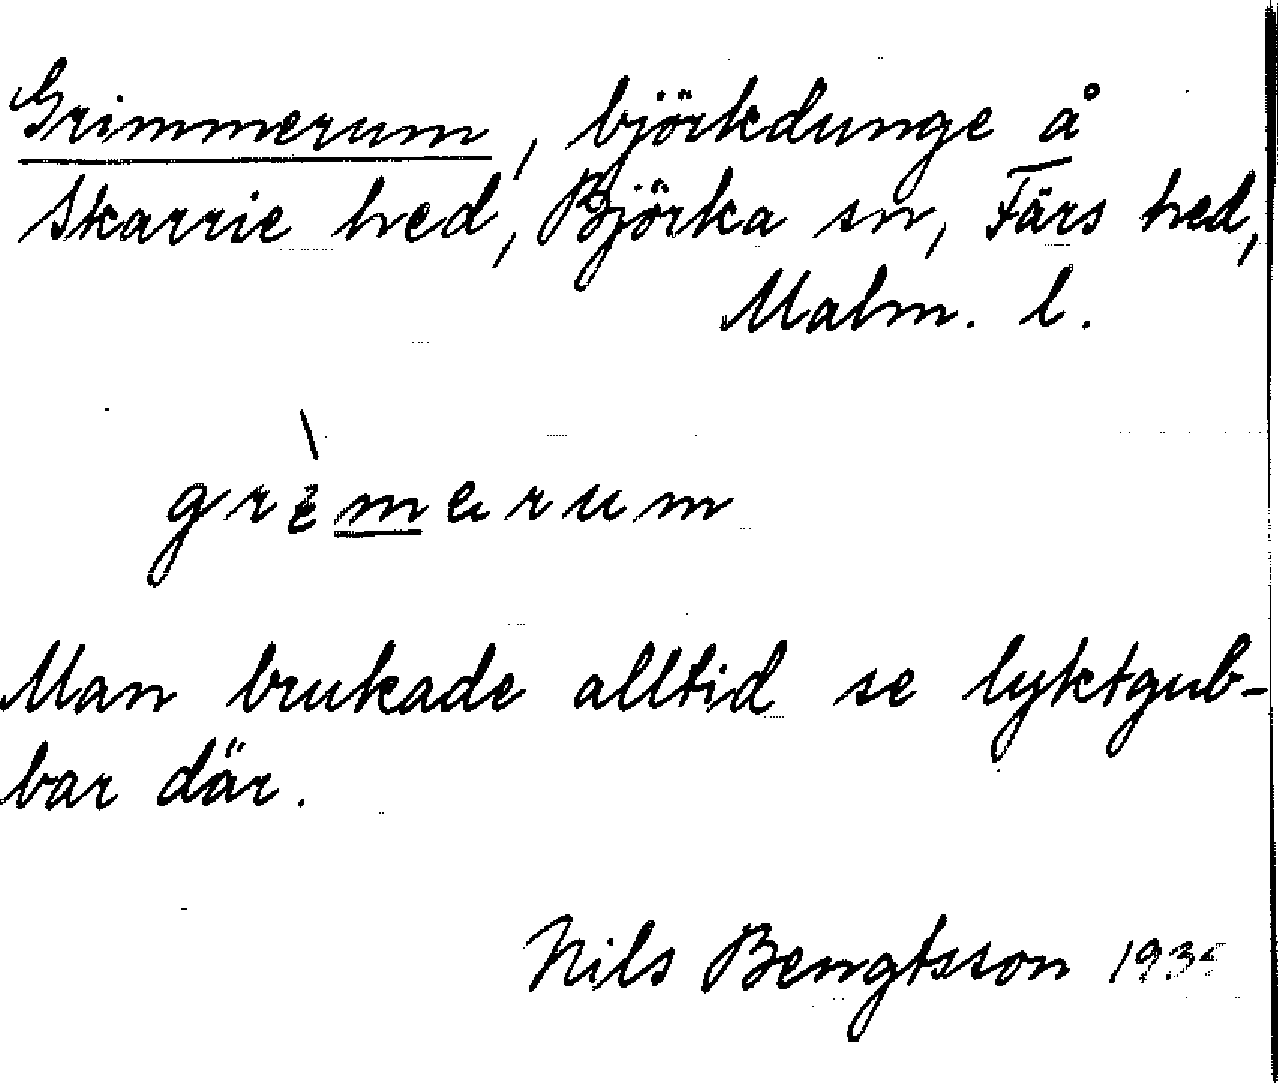 Grimmerum, björkdunge å
Skarrie hed, Björka sn, Färs hed,
Malm. l.
grèmerum
Man brukade alltid se lyktgub-
bar där.
Nils Bengtsson 1935